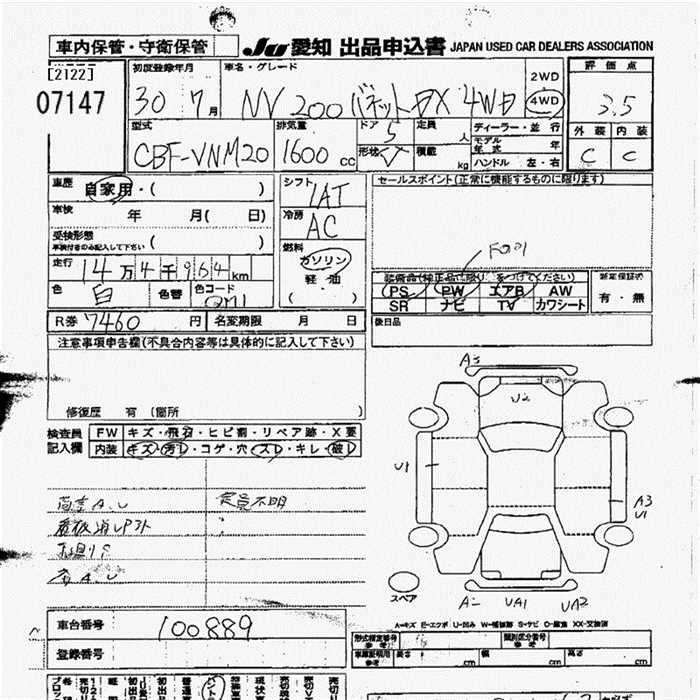 車内保管・守衛保管 JU 愛知 出品申込書 JAPAN USED CAR DEALERS ASSOCIATION
[2122]
07147
初度登録年月 車名・グレード 2WD 4WD 評価点
30 7月 NV 200 バネット DX 4WD 3.5
型式 排気量 ドア 定員 人 ディーラー・並行 外装 内装
CBF-VNM20 1600 cc 5 形状 V 積載 kg モデル年式 年 C C
ハンドル 左・右
車歴 自家用・( ) シフト IAT セールスポイント(正常に機能するものに限ります)
車検 年 月(日) 冷房 AC
受検形態 ( )
車検付きのみ記入して下さい
燃料 ガソリン 軽油 ( )
走行 14万4千964km
色 白 色替 色コード QM1
装備品(純正品に限り)をつけてください)
PS PW エアB AW
SR ナビ TV カワシート
新車保証書 有・無
R券 7460円 名変期限 月 日 後日品
注意事項申告欄(不具合内容等は具体的に記入して下さい)
修復歴 有 (箇所 )
検査員 記入欄
FW キズ・飛石・ヒビ割・リペア跡・X要
内装 キズ・汚レ・コゲ・穴・スレ・キレ・破レ
定員不明
A3
U2
U1
A3
U1
スペア
UA1 UA2
A=キズ E=エクボ U=凹み W=補修跡 S=サビ C=腐食 XX=交換済
車台番号 100889
登録番号
形式指定番号 参考 類別区分番号 参考
車庫証明用 参考 長さ cm 幅 cm 高さ cm